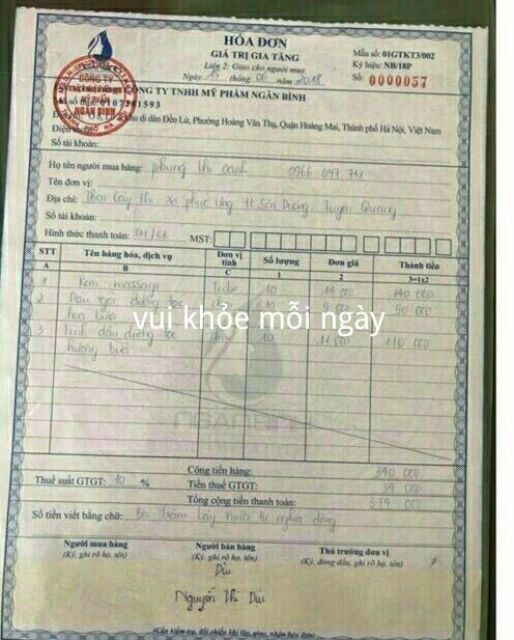 HÓA ĐƠN
GIÁ TRỊ GIA TĂNG
Liên 2: Giao cho người mua
Ngày 15 tháng 06 năm 2018
Mẫu số: 01GTKT3/002
Ký hiệu: NB/18P
Số: 0000057
CÔNG TY
NGÂN BÌNH
CÔNG TY TNHH MỸ PHẨM NGÂN BÌNH
0107281593
di dân Đền Lừ, Phường Hoàng Văn Thụ, Quận Hoàng Mai, Thành phố Hà Nội, Việt Nam
Điện thoại:
Số tài khoản:
Họ tên người mua hàng: Phùng Thị 0966 097
Tên đơn vị:
Địa chỉ: xã Phúc Ứng H. Sơn Dương Tuyên Quang
Số tài khoản:
Hình thức thanh toán: TM/CK MST:
STT Tên hàng hóa, dịch vụ Đơn vị tính Số lượng Đơn giá Thành tiền
A B C 1 2 3=1x2
1 Kem massage 10 14 000 140 000
2 Dầu gội dưỡng tóc 10 9 000 90 000
vui khỏe mỗi ngày
3 Tinh dầu dưỡng tóc 10 11 000 110 000
hương bưởi
NGAN BINH
Cộng tiền hàng: 340 000
Thuế suất GTGT: 10 % Tiền thuế GTGT: 34 000
Tổng cộng tiền thanh toán: 374 000
Số tiền viết bằng chữ: Ba trăm bảy mươi tư nghìn đồng
Người mua hàng Người bán hàng Thủ trưởng đơn vị
(Ký, ghi rõ họ, tên) (Ký, ghi rõ họ, tên) (Ký, đóng dấu, ghi rõ họ, tên)
Nguyễn Thị
(Cần kiểm tra, đối chiếu khi lập, giao, nhận hóa đơn)